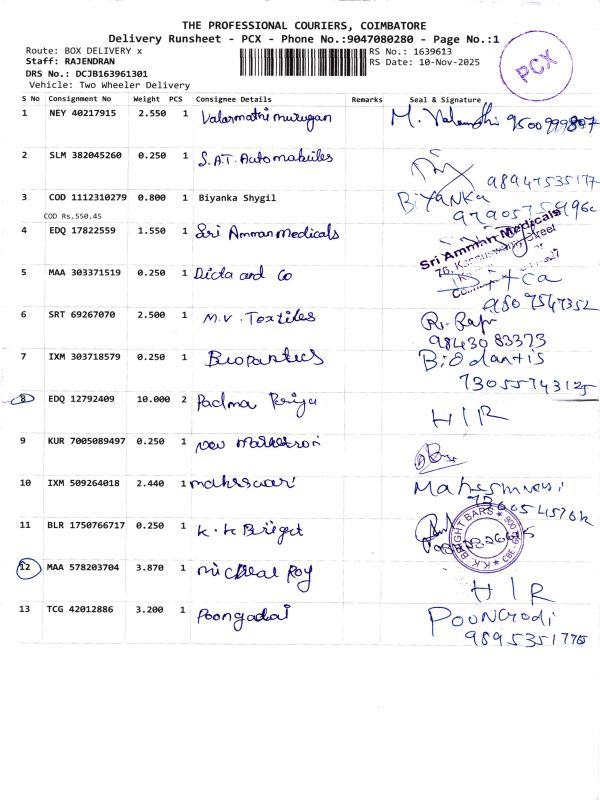 THE PROFESSIONAL COURIERS, COIMBATORE
Delivery Runsheet - PCX - Phone No.:9047080280 - Page No.:1
Route: BOX DELIVERY x RS No.: 1639613
Staff: RAJENDRAN RS Date: 10-Nov-2025
DRS No.: DCJB163961301
Vehicle: Two Wheeler Delivery
PCX
S No Consignment No Weight PCS Consignee Details Remarks Seal & Signature
1 NEY 40217915 2.550 1 Valarmathi murugan M.
2 SLM 382045260 0.250 1 S.A.T. Automobiles
3 COD 1112310279 0.800 1 Biyanka Shygil BiYANKA
COD Rs.550.45
4 EDQ 17822559 1.550 1 Sri Amman Medicals Sri Amman Medicals
5 MAA 303371519 0.250 1 Dicta and Co
9807547352
6 SRT 69267070 2.500 1 M.V. Textiles
9843083373
7 IXM 303718579 0.250 1
73055743125
8 EDQ 12792409 10.000 2 Padma Priya H I R
9 KUR 7005089497 0.250 1
10 IXM 509264018 2.440 1 maheswari
11 BLR 1750766717 0.250 1 K.K Bright K.K. BRIGHT BARS
12 MAA 578203704 3.870 1 micheal Roy H I R
13 TCG 42012886 3.200 1 Poongodai
9895351775